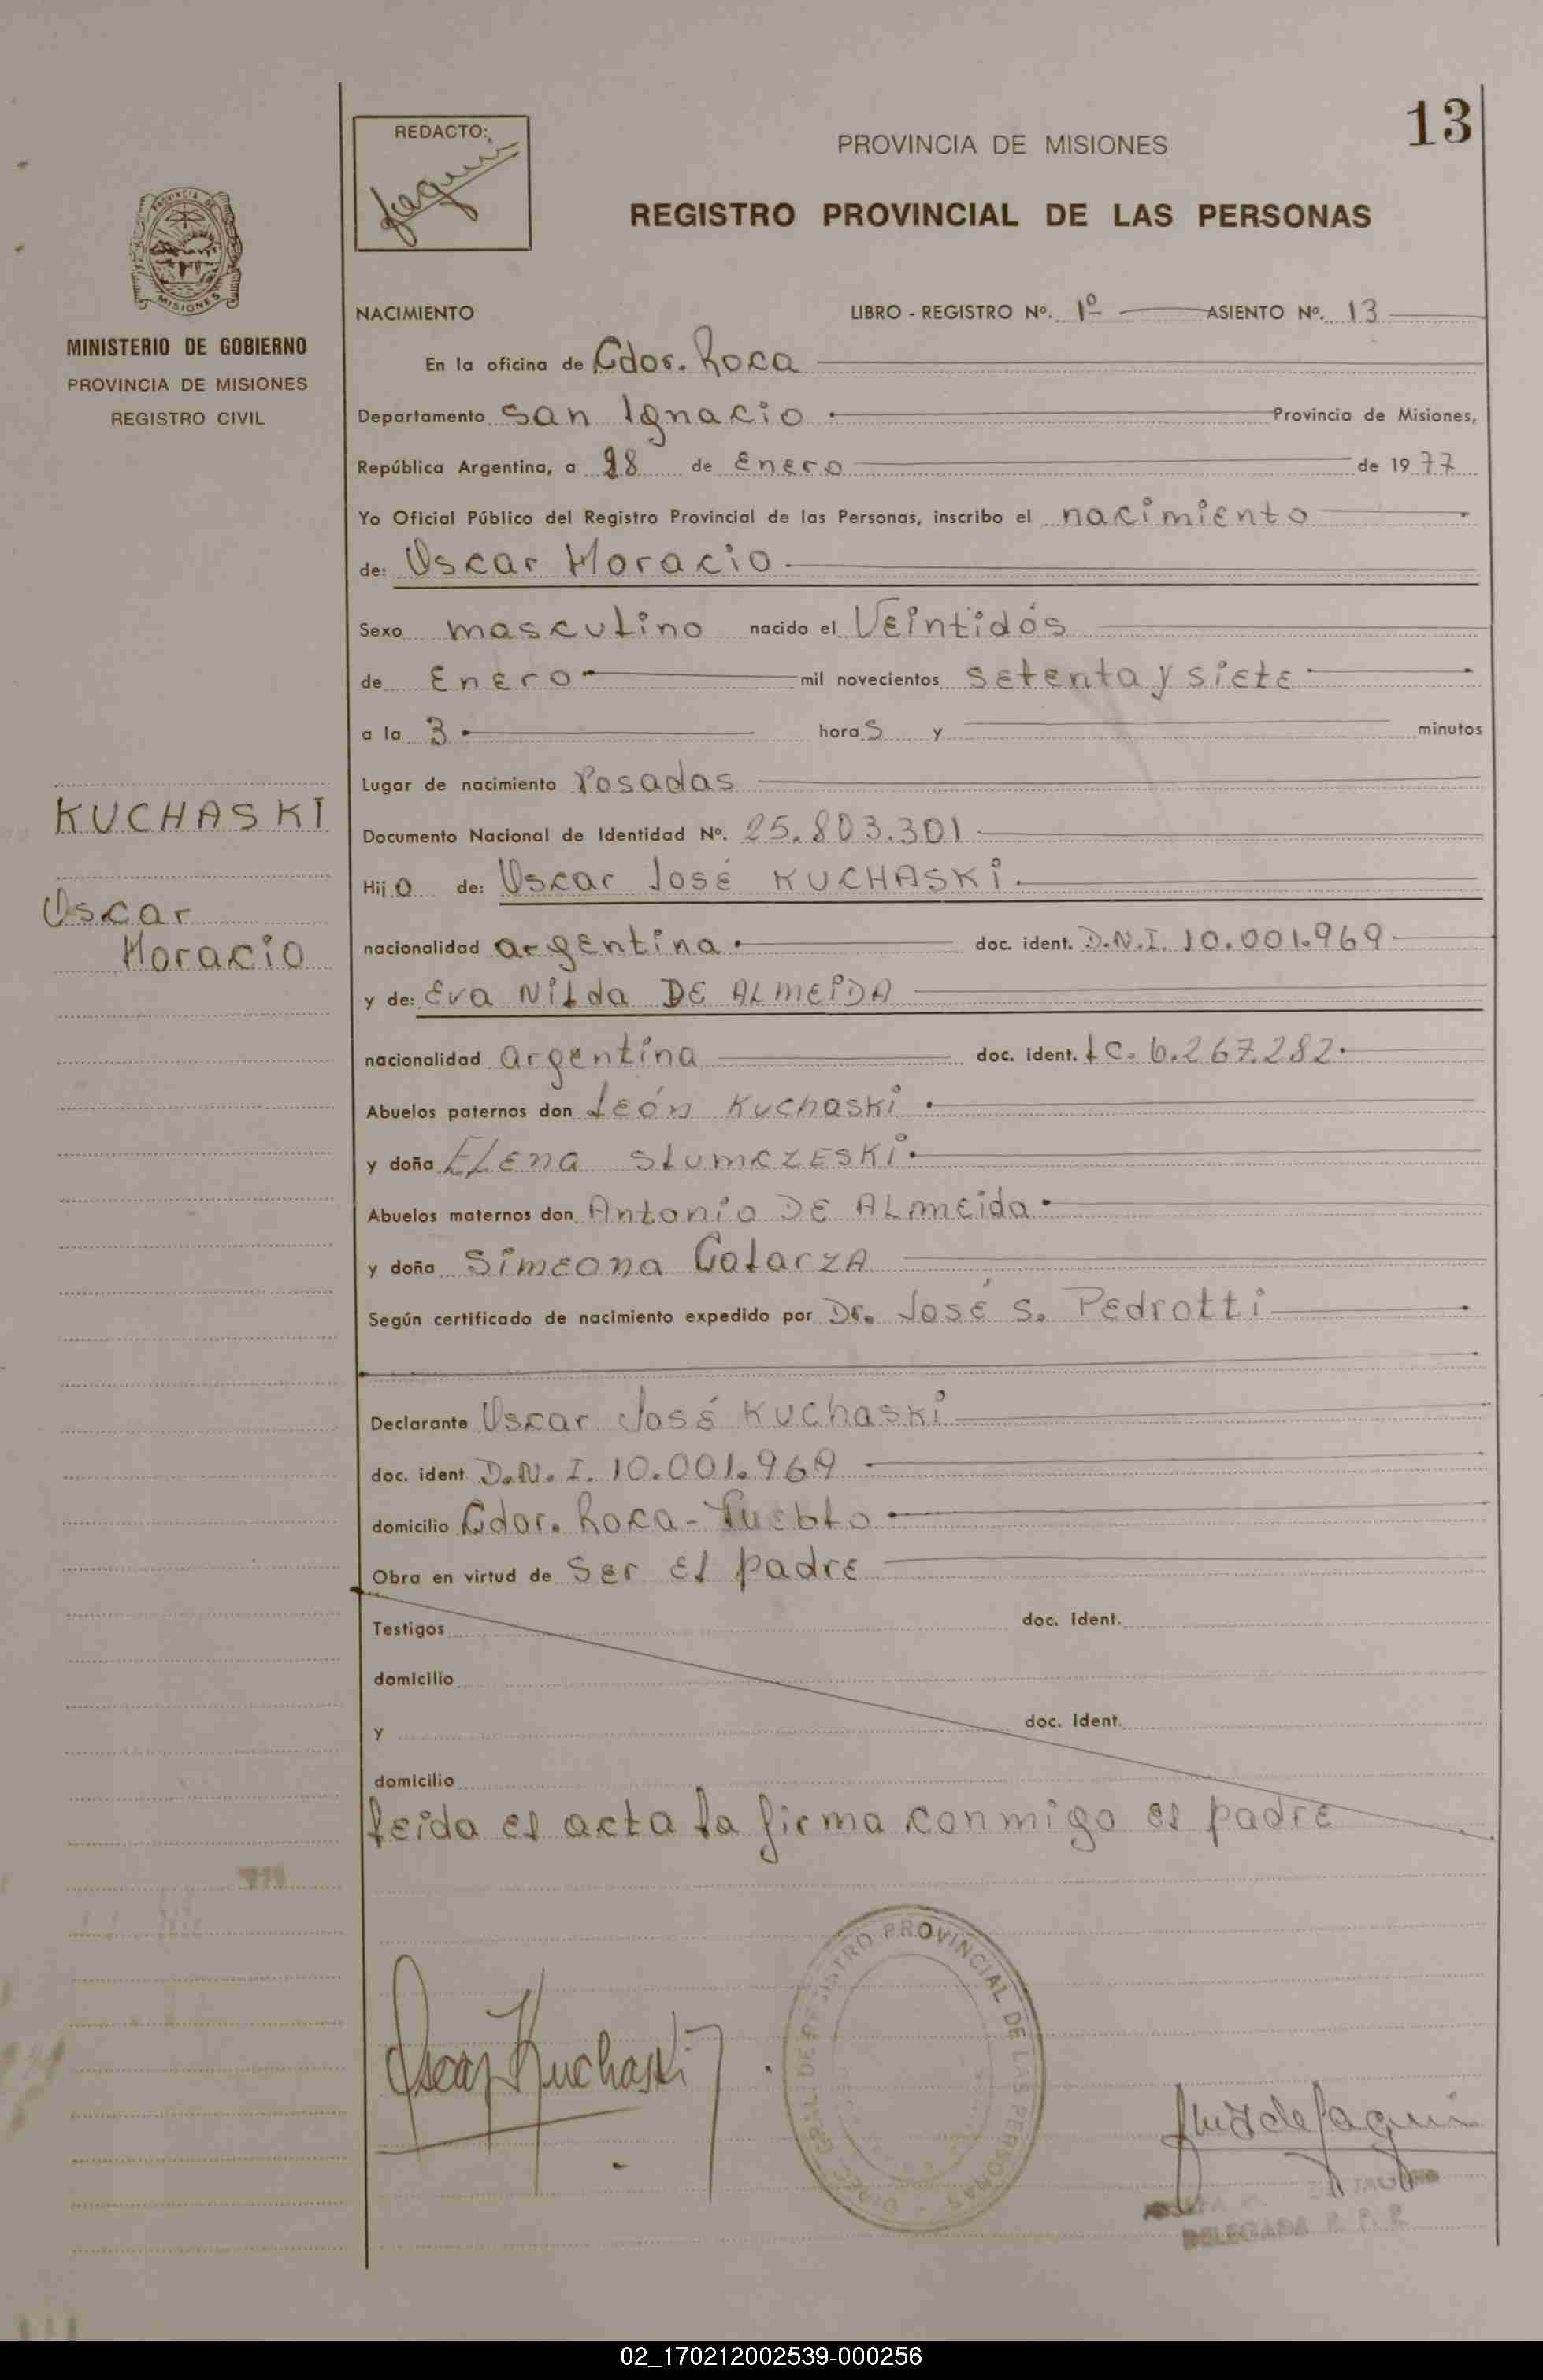 13
REDACTO:
PROVINCIA DE MISIONES
REGISTRO PROVINCIAL DE LAS PERSONAS
PROVINCIA DE
MISIONES
MINISTERIO DE GOBIERNO
PROVINCIA DE MISIONES
REGISTRO CIVIL
NACIMIENTO LIBRO - REGISTRO Nº. 1º ASIENTO Nº. 13
En la oficina de Gdor. Roca
Departamento San Ignacio Provincia de Misiones,
República Argentina, a 28 de Enero de 1977
Yo Oficial Público del Registro Provincial de las Personas, inscribo el nacimiento
de: Oscar Horacio
Sexo masculino nacido el Veintidós
de Enero mil novecientos setenta y siete
a la 3 horas y minutos
Lugar de nacimiento Posadas
KUCHASKI
Documento Nacional de Identidad Nº. 25.803.301
Hijo de: Oscar José KUCHASKI
Oscar
Horacio
nacionalidad argentina doc. ident. D.N.I. 10.001.969
y de: Eva Nilda DE ALMEIDA
nacionalidad argentina doc. ident. LC. 6.267.282
Abuelos paternos don León Kuchaski
y doña ELENA SLUMCZESKI
Abuelos maternos don Antonio DE ALMEIDA
y doña Simeona GALARZA
Según certificado de nacimiento expedido por Dr. José S. Pedrotti
Declarante Oscar José Kuchaski
doc. ident D.N.I. 10.001.969
domicilio Gdor. Roca - Pueblo
Obra en virtud de Ser el padre
Testigos doc. Ident.
domicilio
y doc. Ident.
domicilio
leida el acta la firma conmigo el padre
Oscar Kuchaski
PROVINCIAL DE LAS PERSONAS
DELEGADA R. P. P.
02_170212002539-000256